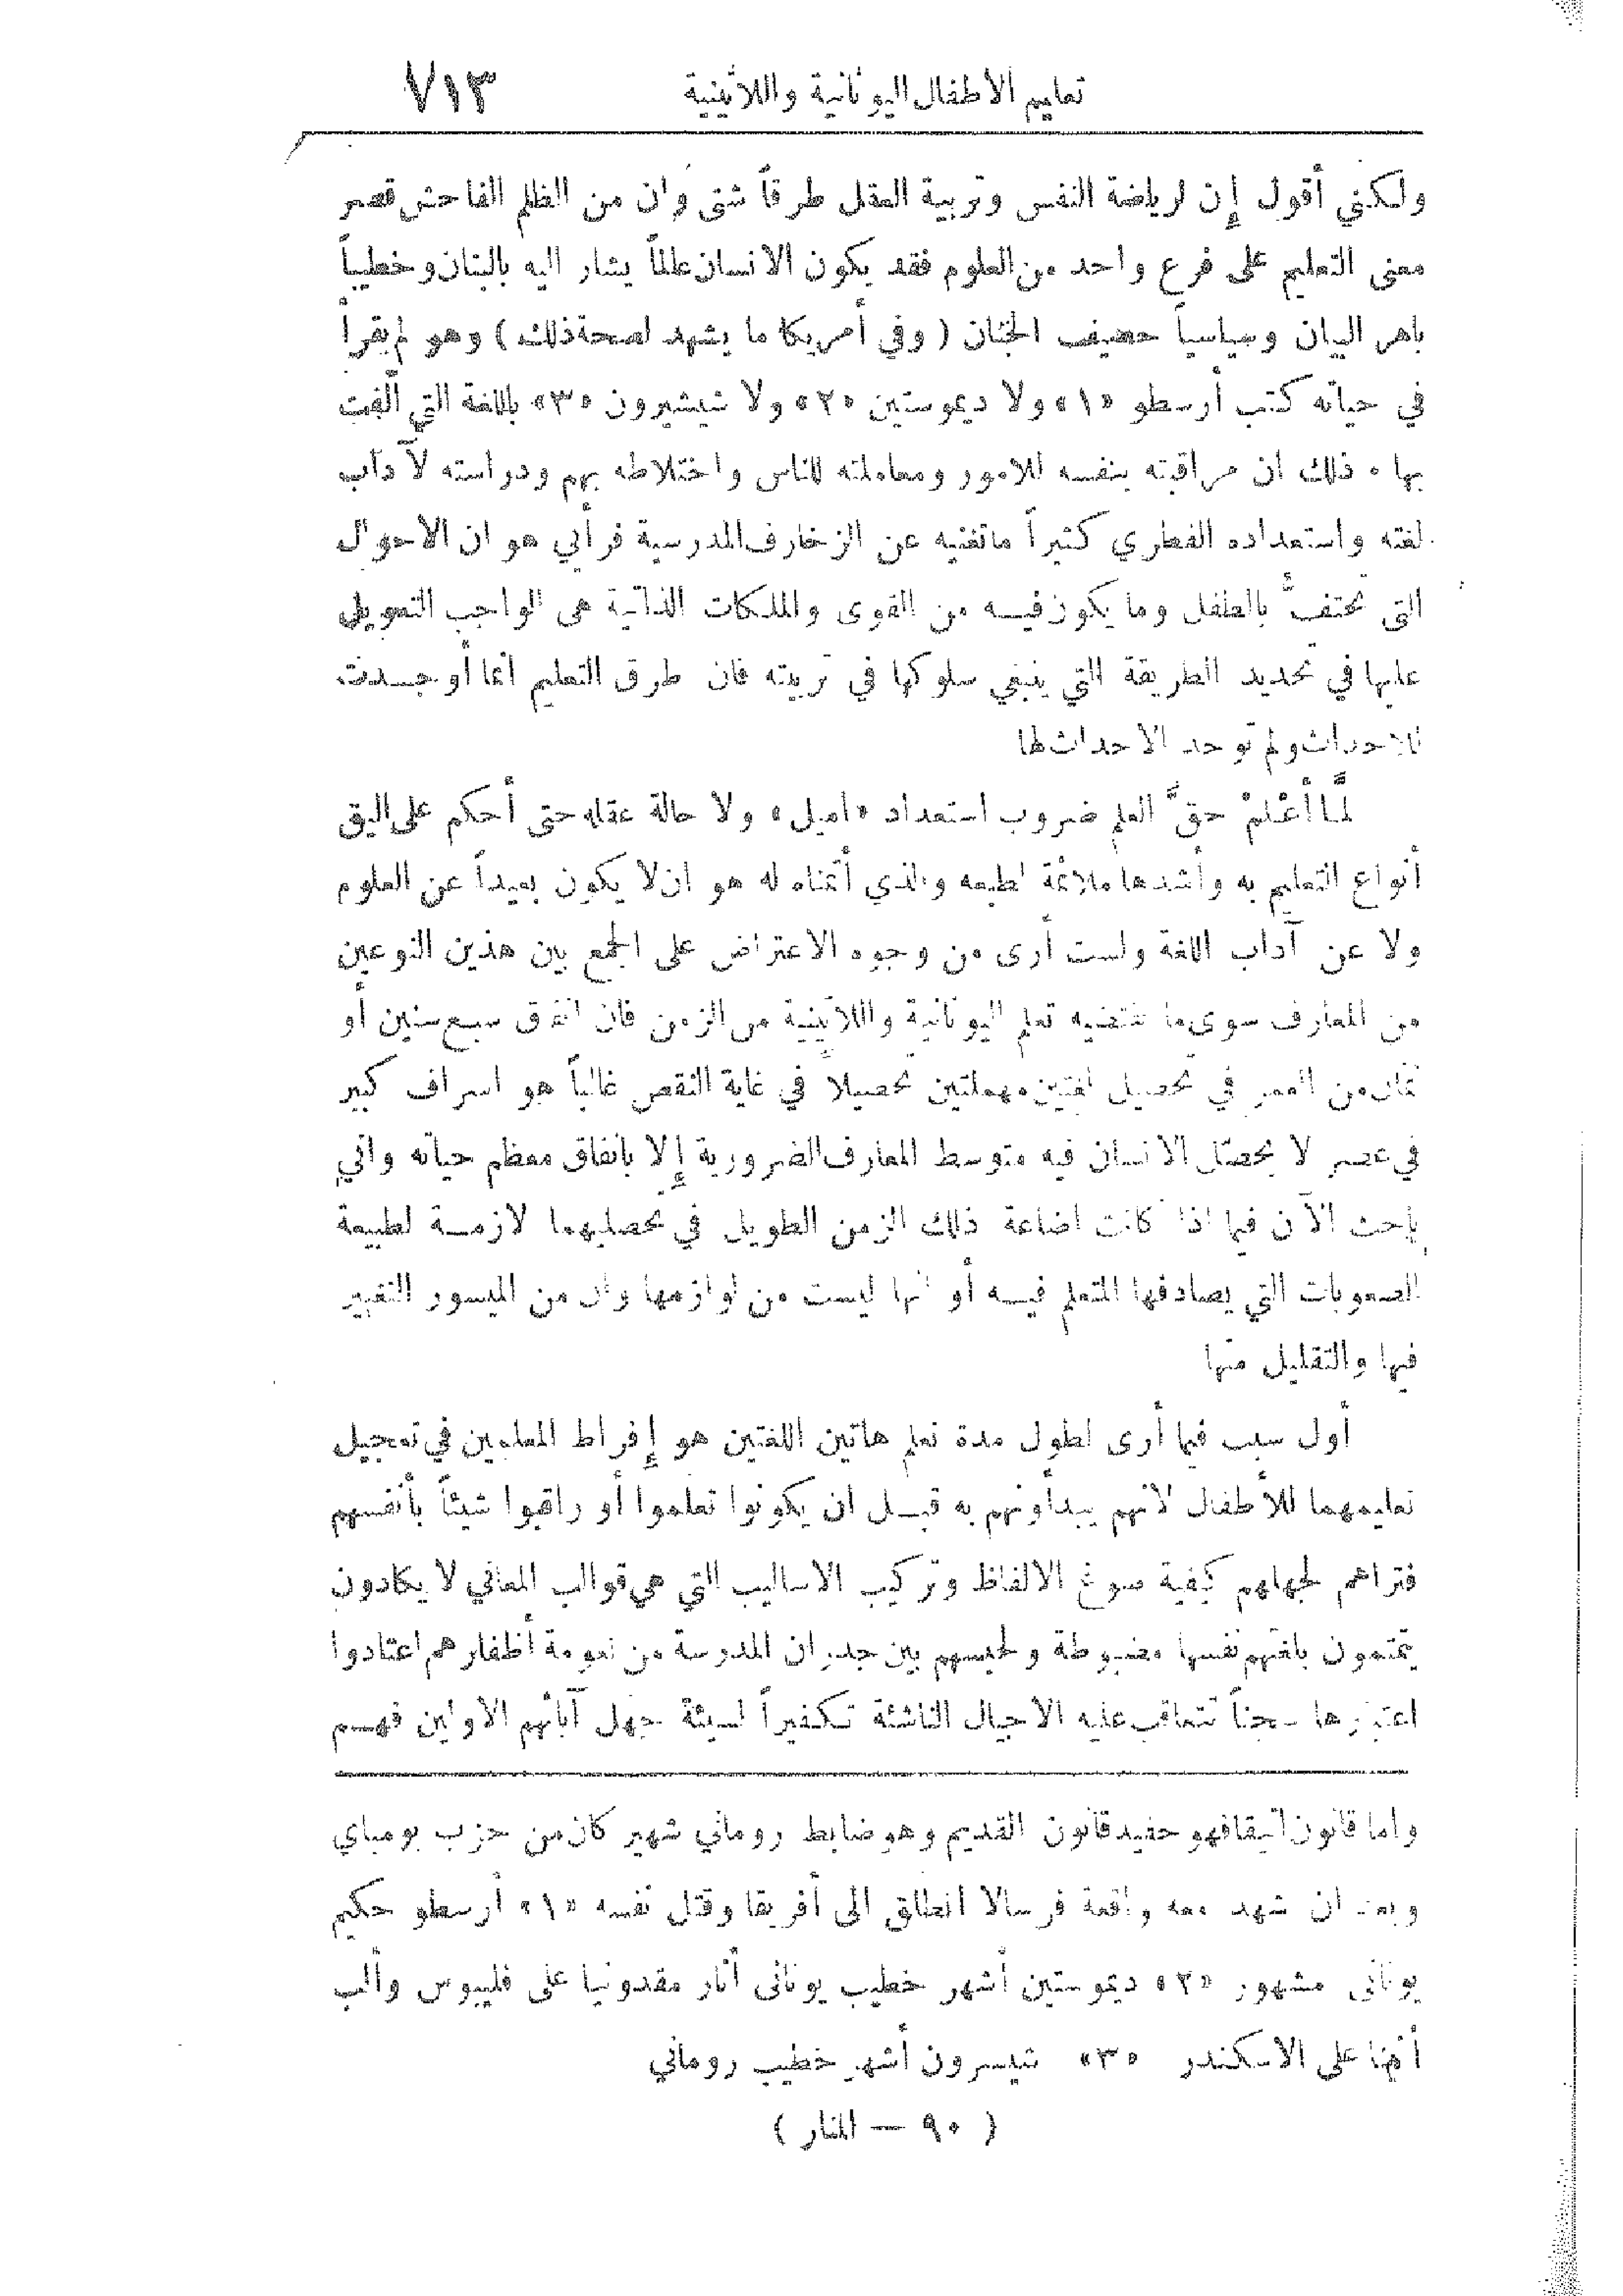 تعليم الاطفال اليونانية واللاتينية ٧١٣
ولكني أقول إن لرياضة النفس وتربية العقل طرقاً شتى وان من الظلم الفاحش قصر
معنى التعليم على فرع واحد من العلوم فقد يكون الانسان عالماً يشار اليه بالبنان وخطيباً
باهر البيان وسياسياً حصيف الجنان ( وفي أمريكا ما يشهد لصحة ذلك ) وهو لم يقرأ
في حياته كتب أرسطو «١» ولا ديموستين «٢» ولا شيشيرون «٣» باللغة التي ألفت
بها ٠ ذلك ان مراقبته بنفسه للامور ومعاملته للناس واختلاطه بهم ودراسته لآداب
لغته واستعداده الفطري كثيراً ما تغنيه عن الزخارف المدرسية فرأيي هو ان الاحوال
التي تحتفُّ بالطفل وما يكون فيه من القوى والملكات الذاتية هى الواجب التعويل
عليها في تحديد الطريقة التي ينبغي سلوكها في تربيته فان طرق التعليم انما أوجدت
للاحداث ولم توجد الاحداث لها
لمَّا أعْلمْ حقَّ العلم ضروب استعداد «اميل» ولا حالة عقله حتى أحكم على اليق
أنواع التعليم به وأشدها ملاءمة لطبعه والذي أتمناه له هو ان لا يكون بعيداً عن العلوم
ولا عن آداب اللغة ولست أرى من وجوه الاعتراض على الجمع بين هذين النوعين
من المعارف سوى ما تقتضيه تعلم اليونانية واللاتينية من الزمن فان انفاق سبع سنين أو
ثمان من العمر في تحصيل لغتين مهملتين تحصيلاً في غاية النقص غالباً هو اسراف كبير
في عصر لا يحصّل الانسان فيه متوسط المعارف الضرورية إلا بانفاق معظم حياته واني
باحث الآن فيما اذا كانت اضاعة ذلك الزمن الطويل في تحصيلهما لازمة لطبيعة
الصعوبات التي يصادفها المتعلم فيه أو انها ليست من لوازمها وان من الميسور التغيير
فيها والتقليل منها
أول سبب فيما أرى لطول مدة تعلم هاتين اللغتين هو إفراط المعلمين في تعجيل
تعليمهما للأطفال لأنهم يبدأونهم به قبل ان يكونوا تعلموا أو راقبوا شيئاً بأنفسهم
فتراهم لجهلهم كيفية صوغ الالفاظ وتركيب الاساليب التي هي قوالب المعاني لا يكادون
يتمتعون بلغتهم نفسها مضبوطة ولحبسهم بين جدران المدرسة من نعومة أظفارهم اعتادوا
اعتبارها سجناً تتعاقب عليه الاجيال الناشئة تكفيراً لسيئة جهل آبائهم الاولين فهم
واما قانون اتيقا فهو حفيد قانون القديم وهو ضابط روماني شهير كان من حزب بومباي
وبعد ان شهد معه واقعة فرسالا انطلق الى أفريقا وقتل نفسه «١» أرسطو حكيم
يونانى مشهور «٢» ديموستين أشهر خطيب يونانى أثار مقدونيا على فليبوس وألب
أثينا على الاسكندر «٣» شيسرون أشهر خطيب روماني
( ٩٠ — المنار )